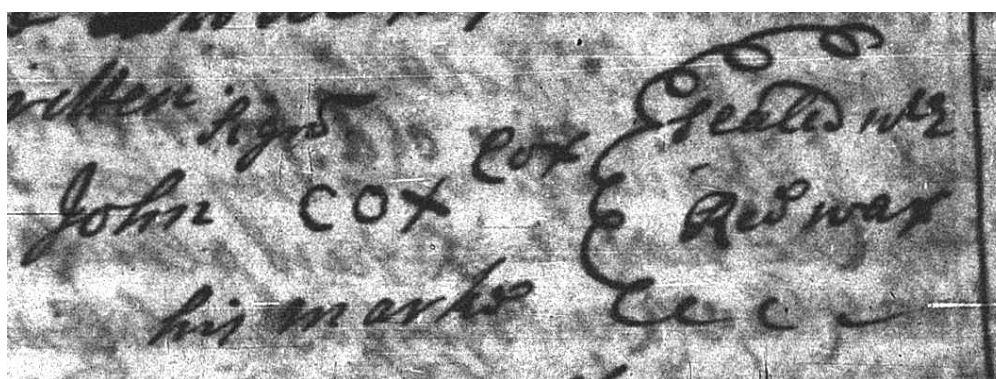 ritten Sgnd
Cox
Sealed wth
John COX
Red wax
his marke